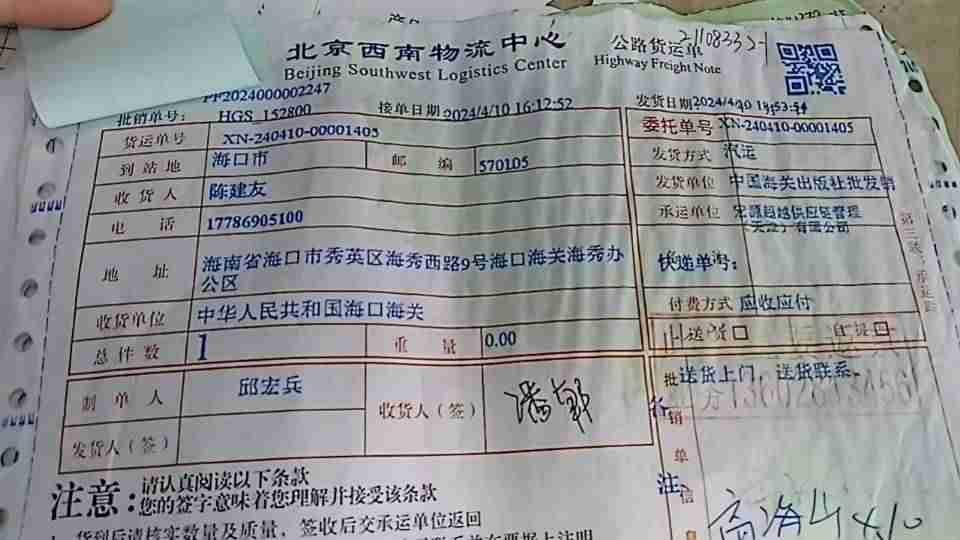 北京西南物流中心
Beijing Southwest Logistics Center
公路货运单
Highway Freight Note
批销单号: PF2024000002247
HGS_152800
接单日期 2024/4/10 16:12:52
发货日期 2024/4/10
货运单号 XN-240410-00001405
委托单号 XN-240410-00001405
到站地 海口市 邮编 570105
发货方式 汽运
收货人 陈建友
发货单位 中国海关出版社批发销
电话 17786905100
承运单位 宏源超越供应链管理
(天津)有限公司
地址 海南省海口市秀英区海秀西路9号海口海关海秀办
公区
快递单号:
收货单位 中华人民共和国海口海关
付费方式 应收应付
总件数 1 重量 0.00
送货 □ 自提 □
制单人 邱宏兵
收货人(签)
发货人(签)
批销单信息
送货上门, 送货联系
备注
注意: 请认真阅读以下条款
您的签字意味着您理解并接受该条款
货到后请核实数量及质量, 签收后交承运单位返回